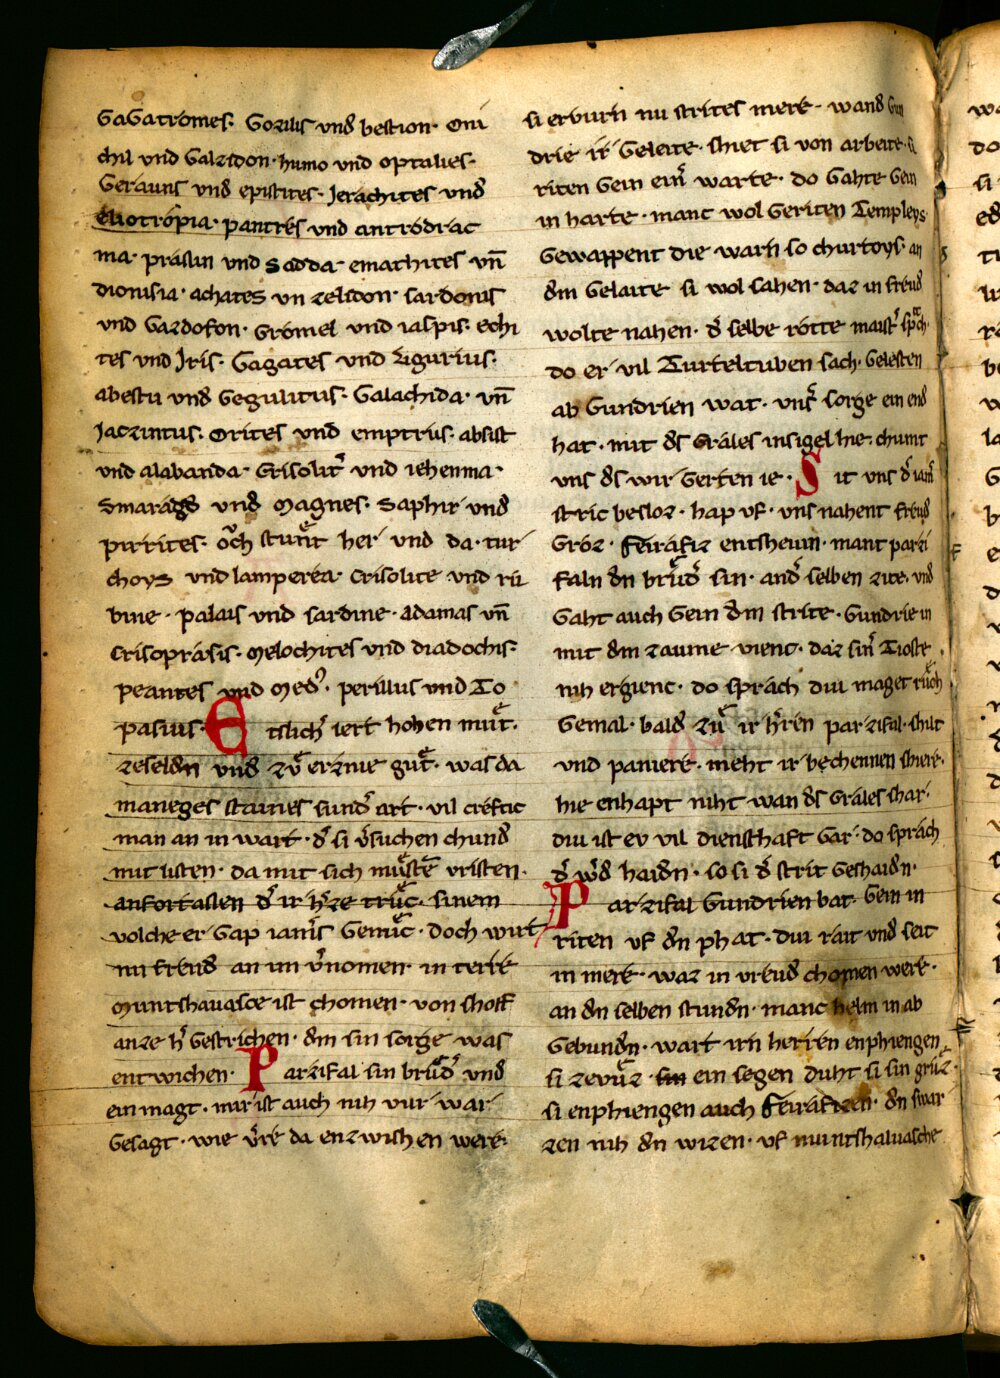 GaGatromes. Gozilis vnd bestion. Oni
chil vnd Galzidon. humo vnd optalies.
Gerauns vnd epistites. Jerachites vnd
eliotropia. pantrés vnd antrodrac
ma. práslin vnd Sadda. emathites vn̄
dionisia. achates vn zelidon. sardonis
vnd Gazdofon. Gromel vnd iaspis. echi
tes vnd Jris. Gagates vnd Ligurius.
abestu vnd Gegulitus. Galachida. vn̄
Jaczintus. Orites vnd emptrus. absist
vnd alabanda. Grisolitͬ vnd iehenma.
Smaragd vnd Magnes. Saphir vnd
pirrites. och stunt her vnd da. tur
choys vnd lamperéa. Crisolite vnd rú
bine. palais vnd sardine. adamas vn̄
Crisoprásis. Melochites vnd diadochis.
peantes vnd Med. perillus vnd To
pasius. Etslich iert hohen můt.
zeseldn vnd zů erznie gůt. was da
maneges staines sundˀ art. vil creftic
man an in wart. dˀ si vˀsuchen chund
mit listen. da mit sich můstē vristen.
anfortassen dˀ ir hˀze trůc. sinem
volche er Gap iamˀs Genůc. doch wirt
nu freud an im vˀnomen. in terre
Muntshauasce ist chomen. von shoff
anze hˀ Gestrichen. dm sin sorge was
entwichen. Parzifal sin brůdˀ vnd
ein magt. mir ist auch niht vur war
Gesagt. wie vˀre da enzwischen were.
si ervurn nu strites mere. wand Gun
drie ir Geleite. shiet si von arbeite. si
riten Gein einˀ warte. do Gahte Gein
in harte. manc wol Geriten Templeys
Gewappent die warn so churtoys. an
dm Gelaite si wol sahen. daz in freud
wolte nahen. dˀ selbe rotte maistˀ spͣch.
do er vil Turteltuben sach. Gelesten
ab Gundrien wat. vnsˀ sorge ein end
hat. mit ds Gráles insigel hie. chumt
vns ds wir Gerten ie. Sit vns dˀ iamˀ
stric besloz. hap vf. vns nahent freud
Gróz. feirafiz entshewin. mant parzi
faln dn brůdˀ sin. andˀ selben zite. vnd
Gaht auch Gein dm strite. Gundrie in
mit dm zaume vienc. daz sinˀ Tioste
niht ergienc. do spräch diu maget růch
Gemal. bald zů ir hˀren parzifal. shilt
vnd paniere. meht ir bechennen shiere.
hie enhapt niht wan ds Gráles shar.
diu ist ev vil diensthaft Gar. do spräch
dˀ wˀd haidn. so si dˀ strit Geshaidn.
Parzifal Gundrien bat. Gein in
riten vf dn phat. diu rait vnd seit
in mere. waz in vreud chomen were.
an dn selben stundn. manc helm in ab
Gebundn. wart irn herren enphiengen
si zevůz. sin ein segen duht si sin grůz.
si enphiengen auch Feirafizen. dn swar
zen niht dn wizen. vf muntshaluasche